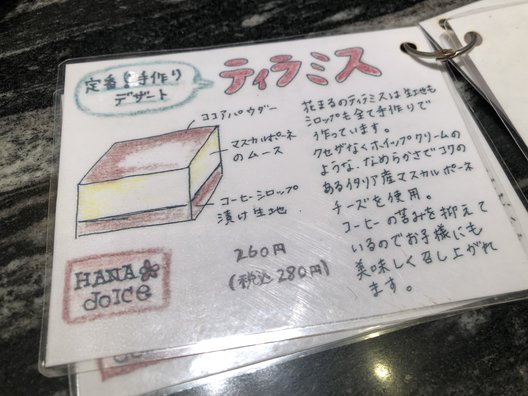 定番!手作り
デザート
ティラミス
ココアパウダー
マスカルポーネ
のムース
コーヒーシロップ
漬け生地
260円
(税込280円)
HANA
dolce
花まるのティラミスは生地も
シロップも全て手作りで
作っています。
クセがなくホイップクリームの
ような、なめらかさでコクの
あるイタリア産マスカルポーネ
チーズを使用。
コーヒーの苦みを抑えて
いるのでお子様にも
美味しく召し上がれ
ます。